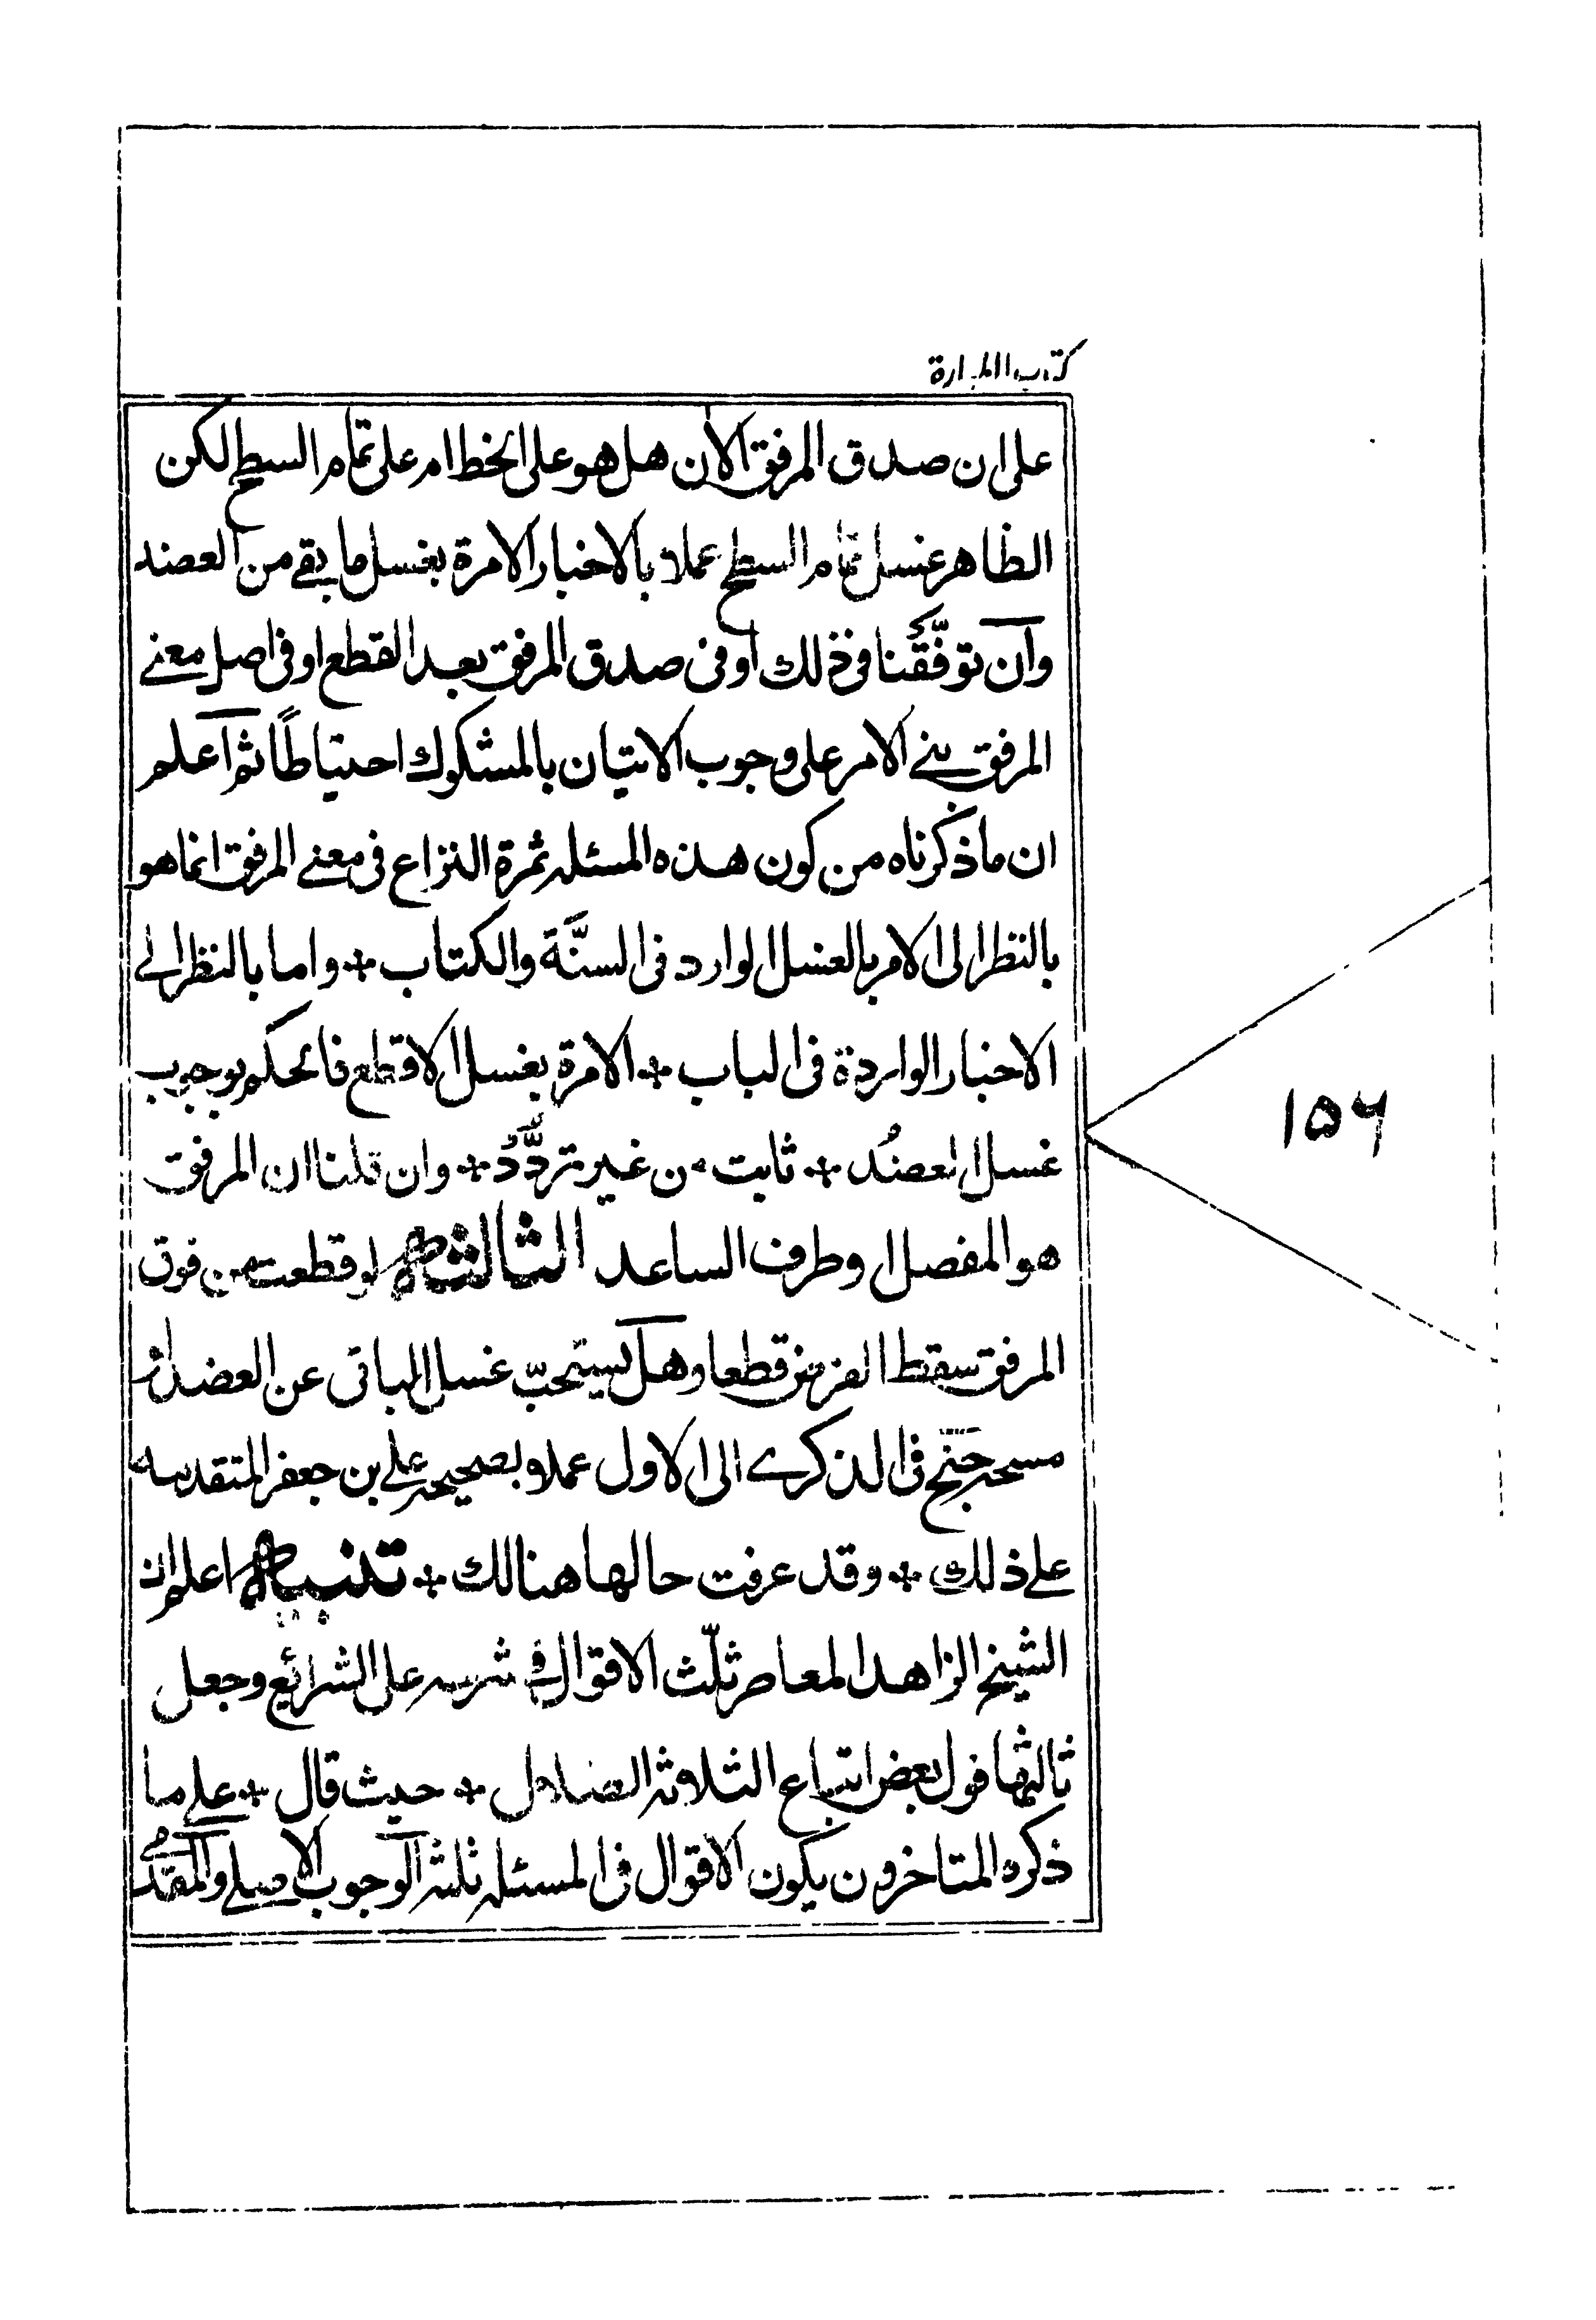 كتاب الطهارة
على ان صدق المرفق الآن هل هو على الخط ام على تمام السطح لكن
الظاهر غسل تمام السطح عملا بالاخبار الامرة بغسل ما بقے من العضد
وآن توقّفنا فى ذلك او فى صدق المرفق بعد القطع او فى اصل معنے
المرفق بنے الامر على وجوب الاتيان بالمشكوك احتياطًا ثم آعلم
ان ما ذكرناه من كون هذه المسئله ثمرة النزاع فى معنے المرفق انما هو
بالنظر الى الامر بالغسل الوارد فى السنَّة والكتاب + واما بالنظر الے
الاخبار الواردة فى الباب + الامرة بغسل الاقطع فالحكم بوجوب
غسل العضُد + ثابت من غير تردُّد + وان قلنا ان المرفق
هو المفصل او طرف الساعد الثالثه لو قطعت من فوق
المرفق سقط الفرض قطعا وهل يستحبّ غسل الباقى عن العضد او
مسحه جنح فى الذكرے الى الاول عملا بصحيحه على بن جعفر المتقدمه
علے ذلك + وقد عرفت حالها هنالك + تنبيه اعلم ان
الشيخ الزاهد المعاصر ثلّث الاقوال فى شرحه على الشرائع وجعل
ثالثها قول بعض اتباع الثلاثه الضلال + حيث قال + علے ما
ذكره المتاخرون يكون الاقوال فى المسئله ثلثه آلوجوب الاصلے والمقدّمے
١٥٦